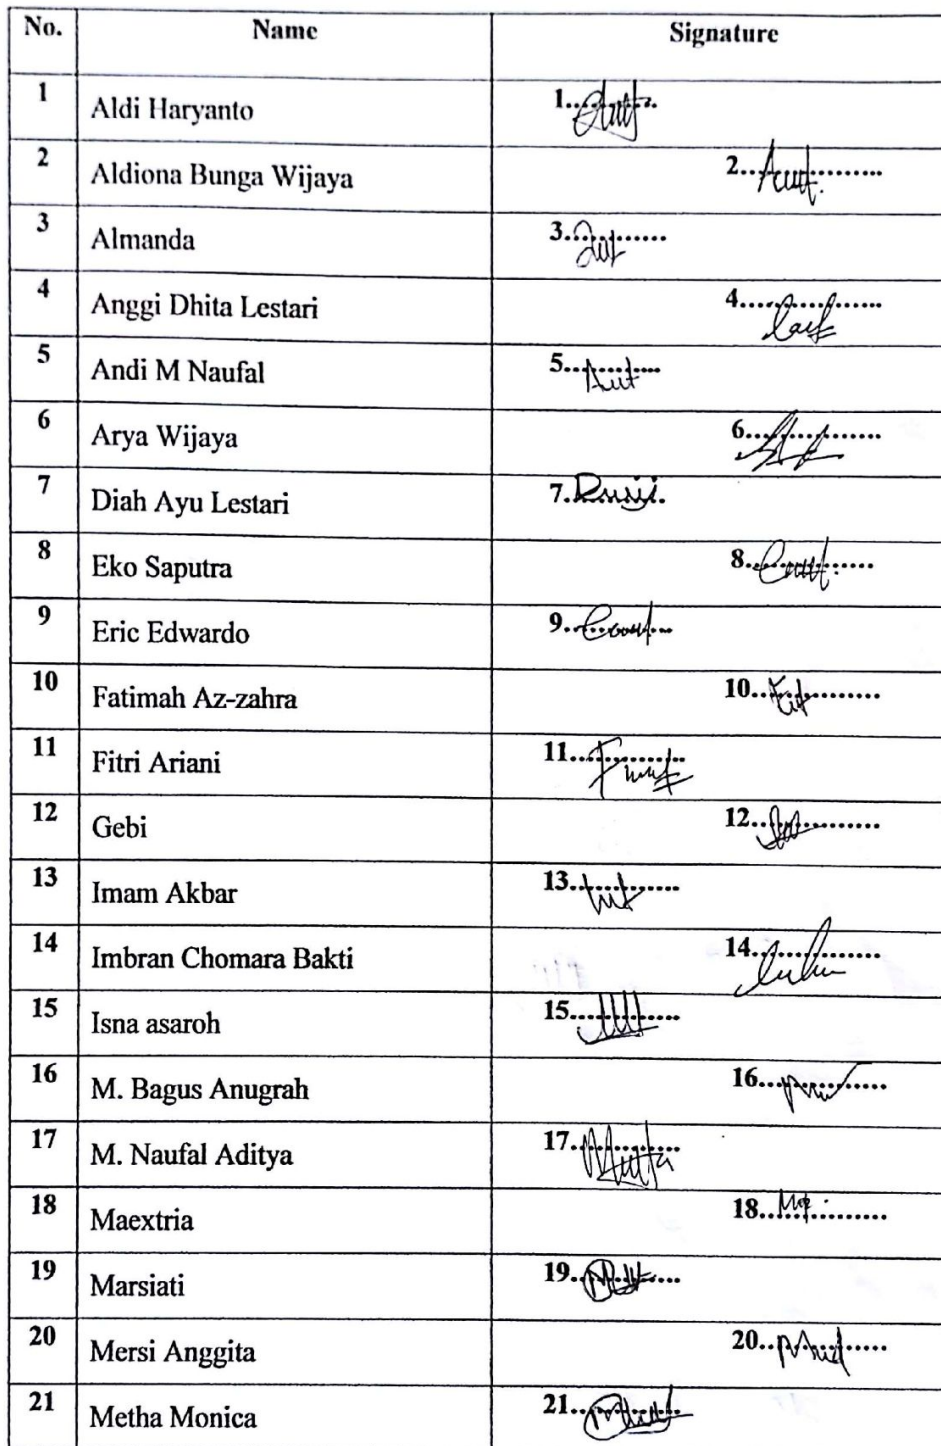 No. Name Signature
1 Aldi Haryanto 1..........
2 Aldiona Bunga Wijaya 2..........
3 Almanda 3..........
4 Anggi Dhita Lestari 4..........
5 Andi M Naufal 5..........
6 Arya Wijaya 6..........
7 Diah Ayu Lestari 7..........
8 Eko Saputra 8..........
9 Eric Edwardo 9..........
10 Fatimah Az-zahra 10..........
11 Fitri Ariani 11..........
12 Gebi 12..........
13 Imam Akbar 13..........
14 Imbran Chomara Bakti 14..........
15 Isna asaroh 15..........
16 M. Bagus Anugrah 16..........
17 M. Naufal Aditya 17..........
18 Maextria 18..........
19 Marsiati 19..........
20 Mersi Anggita 20..........
21 Metha Monica 21..........